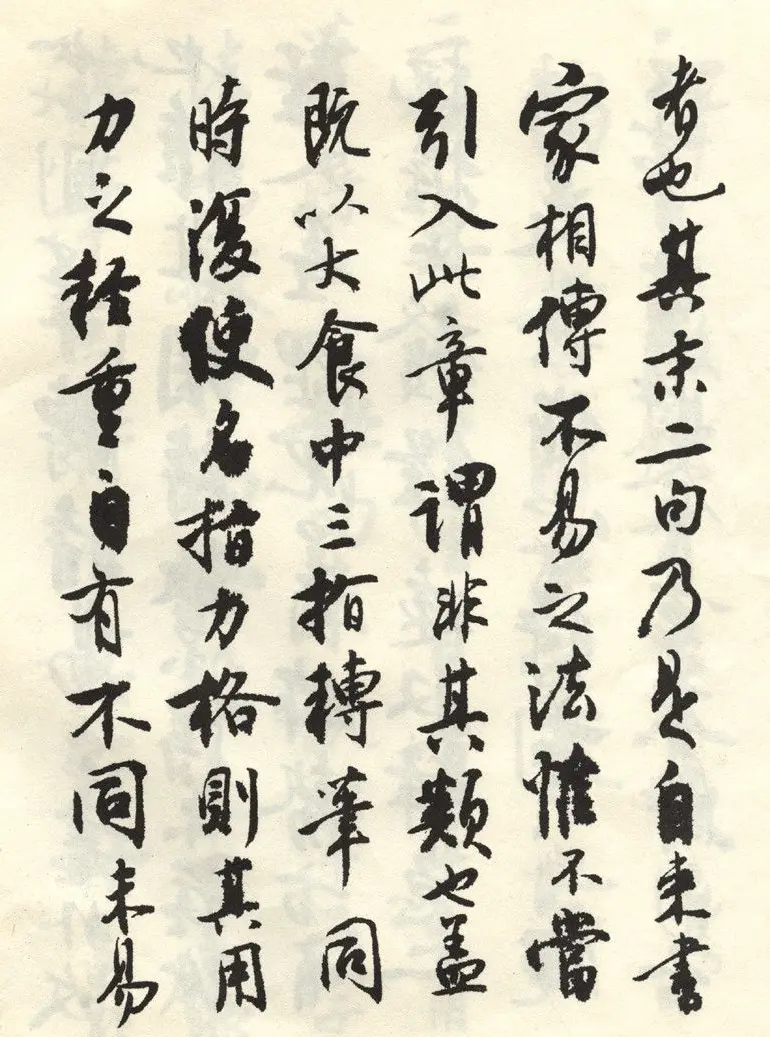 者也其末二句乃是自来書
家相傳不易之法惟不當
引入此章謂非其類也盖
既以大食中三指摶筆同
時復使名指力格則其用
力之輕重自有不同未易